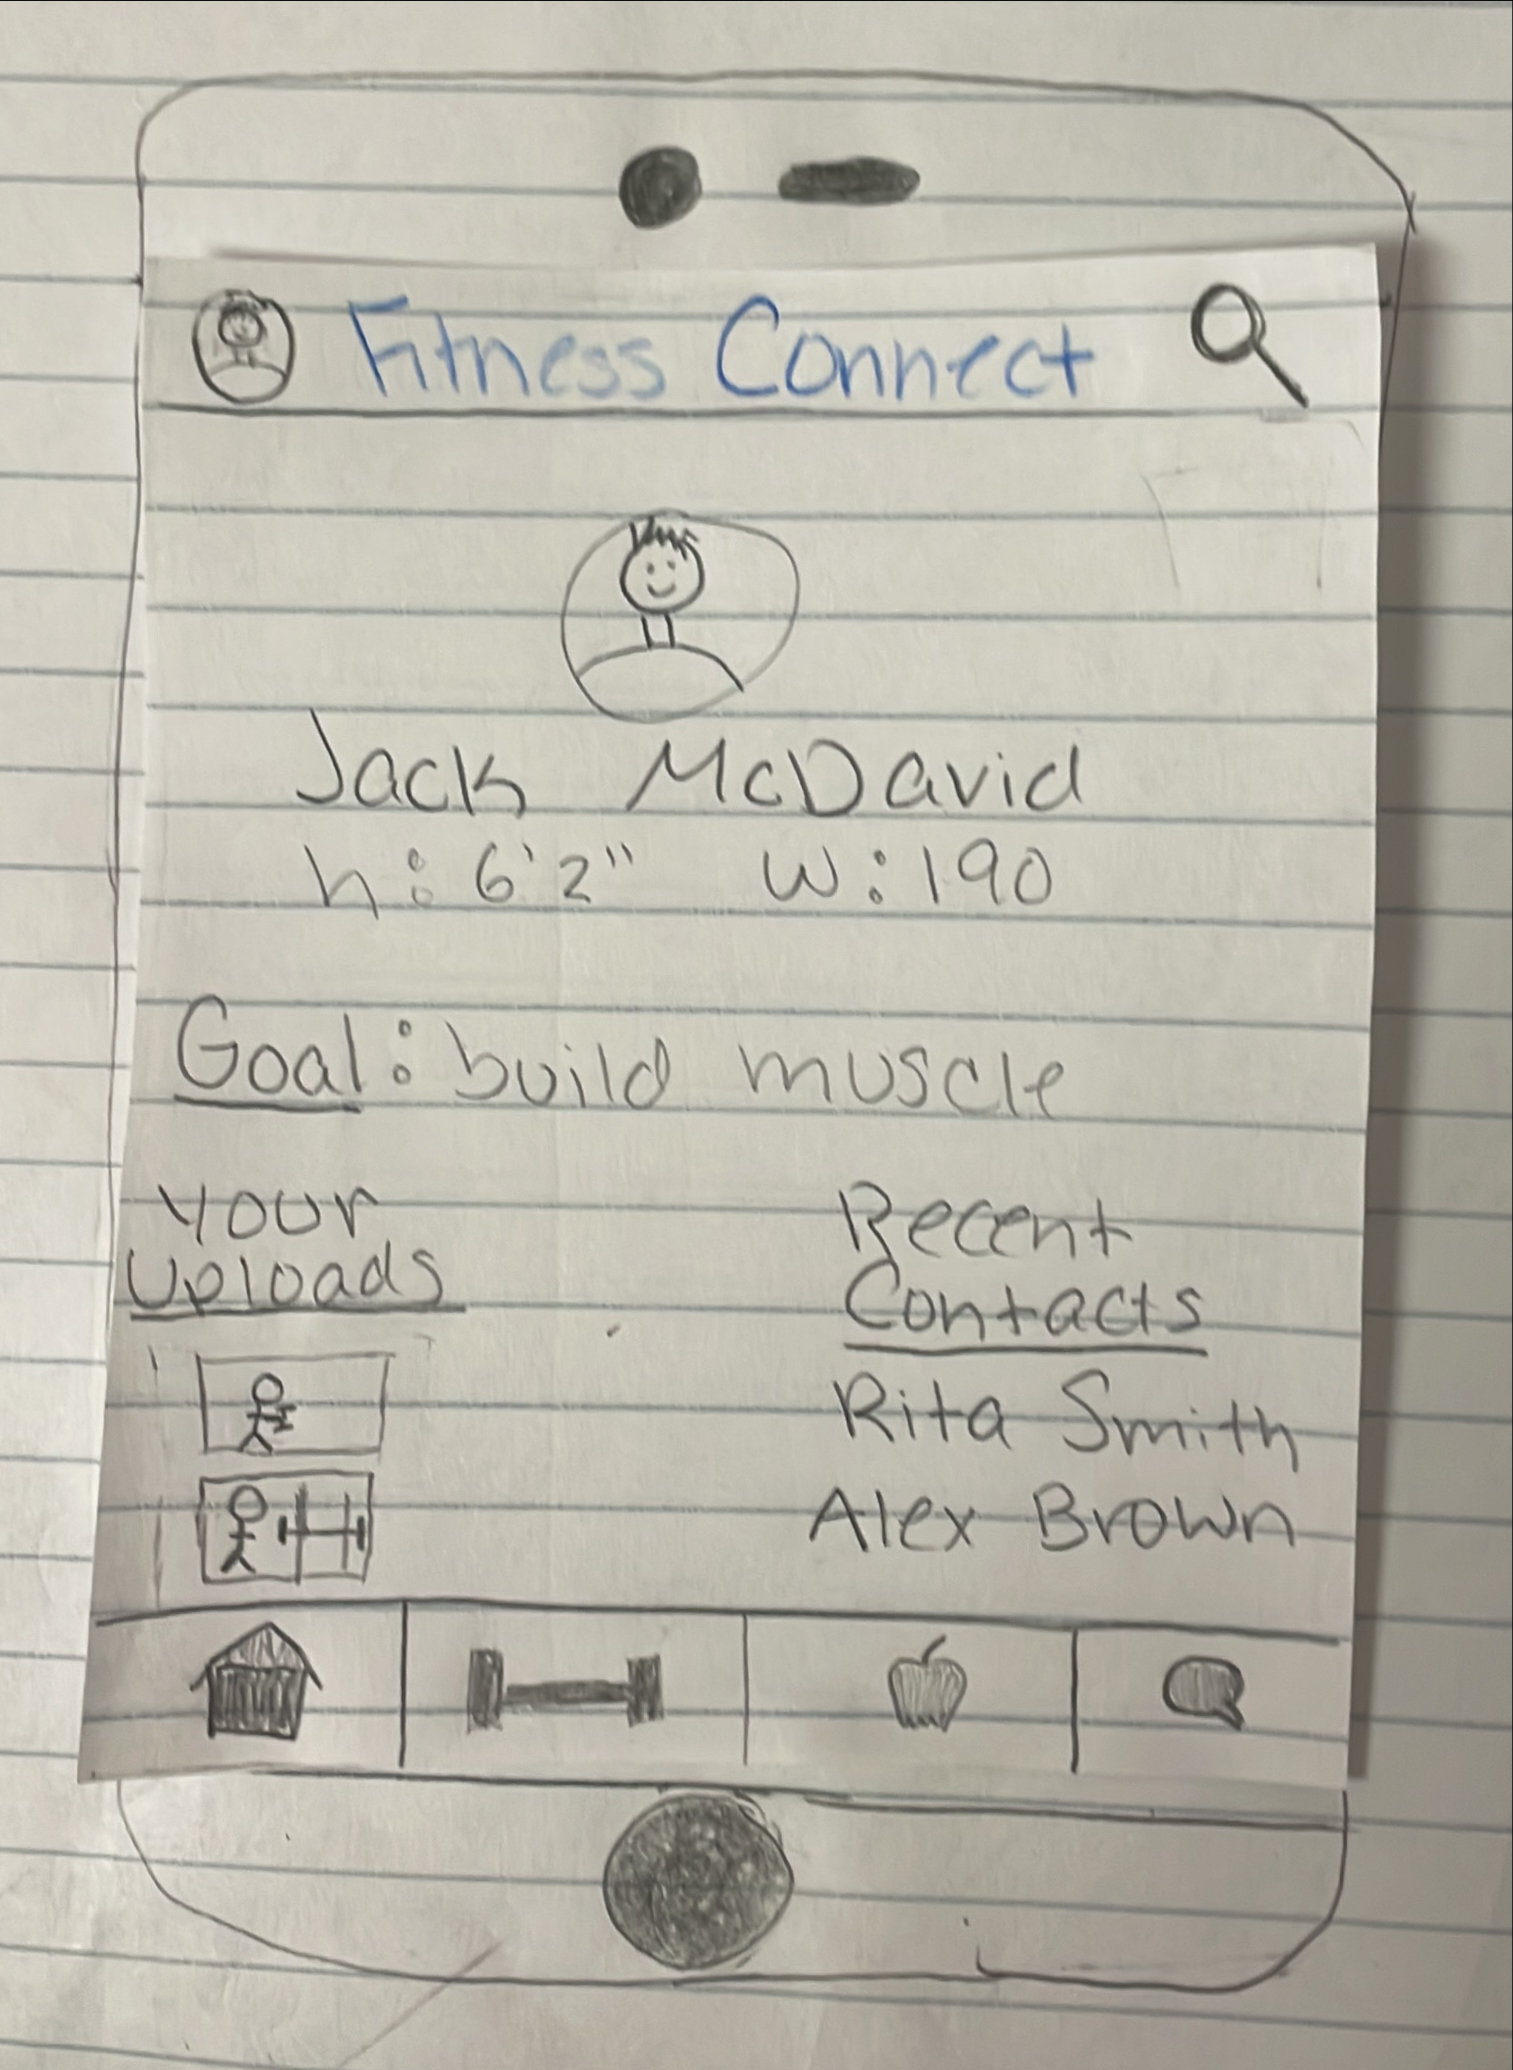 Fitness Connect
Jack McDavid
h: 6'2" W: 190
Goal: build muscle
Your
Uploads
Recent
Contacts
Rita Smith
Alex Brown